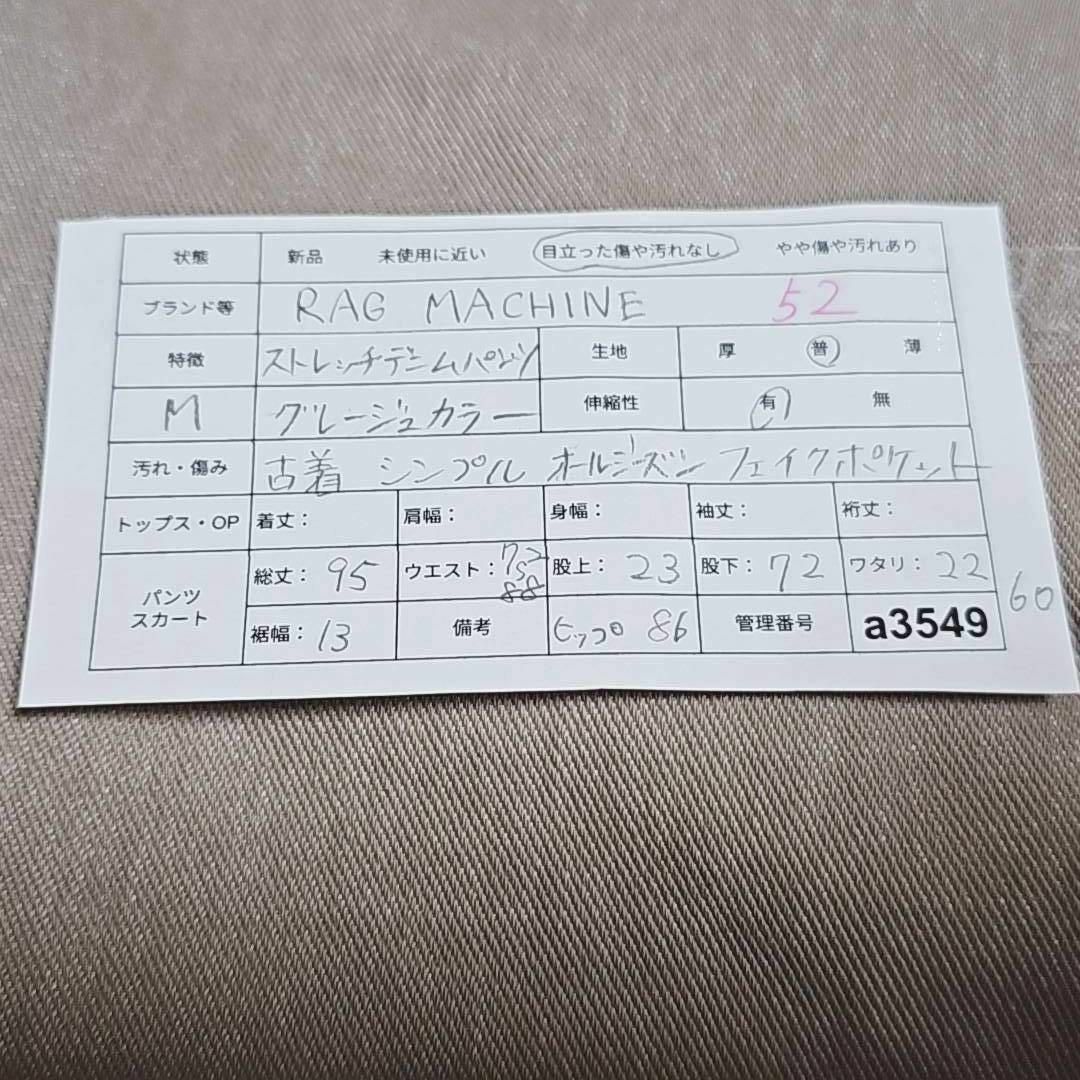 状態 新品 未使用に近い 目立った傷や汚れなし やや傷や汚れあり
ブランド等 RAG MACHINE 52
特徴 ストレッチデニムパンツ 生地 厚 普 薄
M グレージュカラー 伸縮性 有 無
汚れ・傷み 古着 シンプル オールシーズン フェイクポケット
トップス・OP 着丈: 肩幅: 身幅: 袖丈: 裄丈:
パンツ スカート 総丈: 95 ウエスト: 72 88 股上: 23 股下: 72 ワタリ: 22
裾幅: 13 備考 ヒップ 86 管理番号 a3549 60